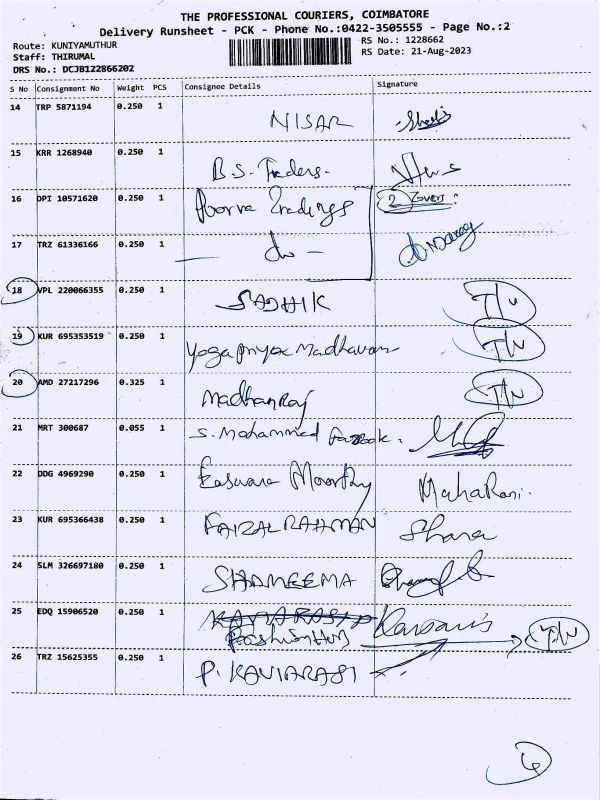 THE PROFESSIONAL COURIERS, COIMBATORE
Delivery Runsheet - PCK - Phone No.:0422-3505555 - Page No.:2
Route: KUNIYAMUTHUR RS No.: 1228662
Staff: THIRUMAL RS Date: 21-Aug-2023
DRS No.: DCJB122866202
S No Consignment No Weight PCS Consignee Details Signature
14 TRP 5871194 0.250 1 NISAR
15 KRR 1268940 0.250 1 B.S. Traders.
16 DPI 10571620 0.250 1 Poorva Tradings 2 Covers.
17 TRZ 61336166 0.250 1 — do —
18 VPL 220066355 0.250 1 SADHIK T/N
19 KUR 695353519 0.250 1 Yogapriya Madhavan T/N
20 AMD 27217296 0.325 1 Madhanraj T/N
21 MRT 300687 0.055 1 S. Mohammed Farook.
22 DDG 4969290 0.250 1 Easwara Moorthy MahaRani.
23 KUR 695366438 0.250 1 FAIZAL RAHMAN Shana
24 SLM 326697180 0.250 1 SHAMEEMA
25 EDQ 15906520 0.250 1 KAVIARASI P T/N
26 TRZ 15625355 0.250 1 P. KAVIARASI